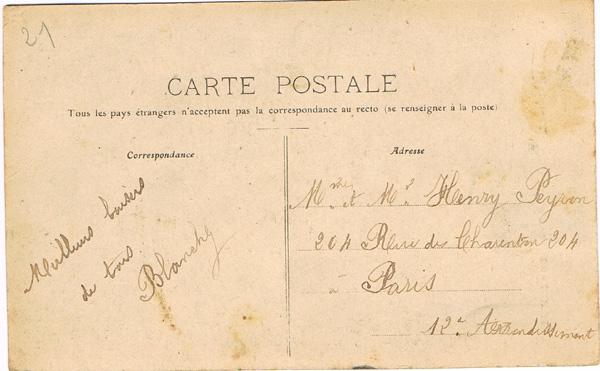 21
CARTE POSTALE
Tous les pays étrangers n'acceptent pas la correspondance au recto (se renseigner à la poste)
Correspondance
Meilleurs baisers
de tous.
Blanche
Adresse
Mme et Mr Henry Peyron
204 Rue de Charenton 204
à Paris
12e Arrondissement